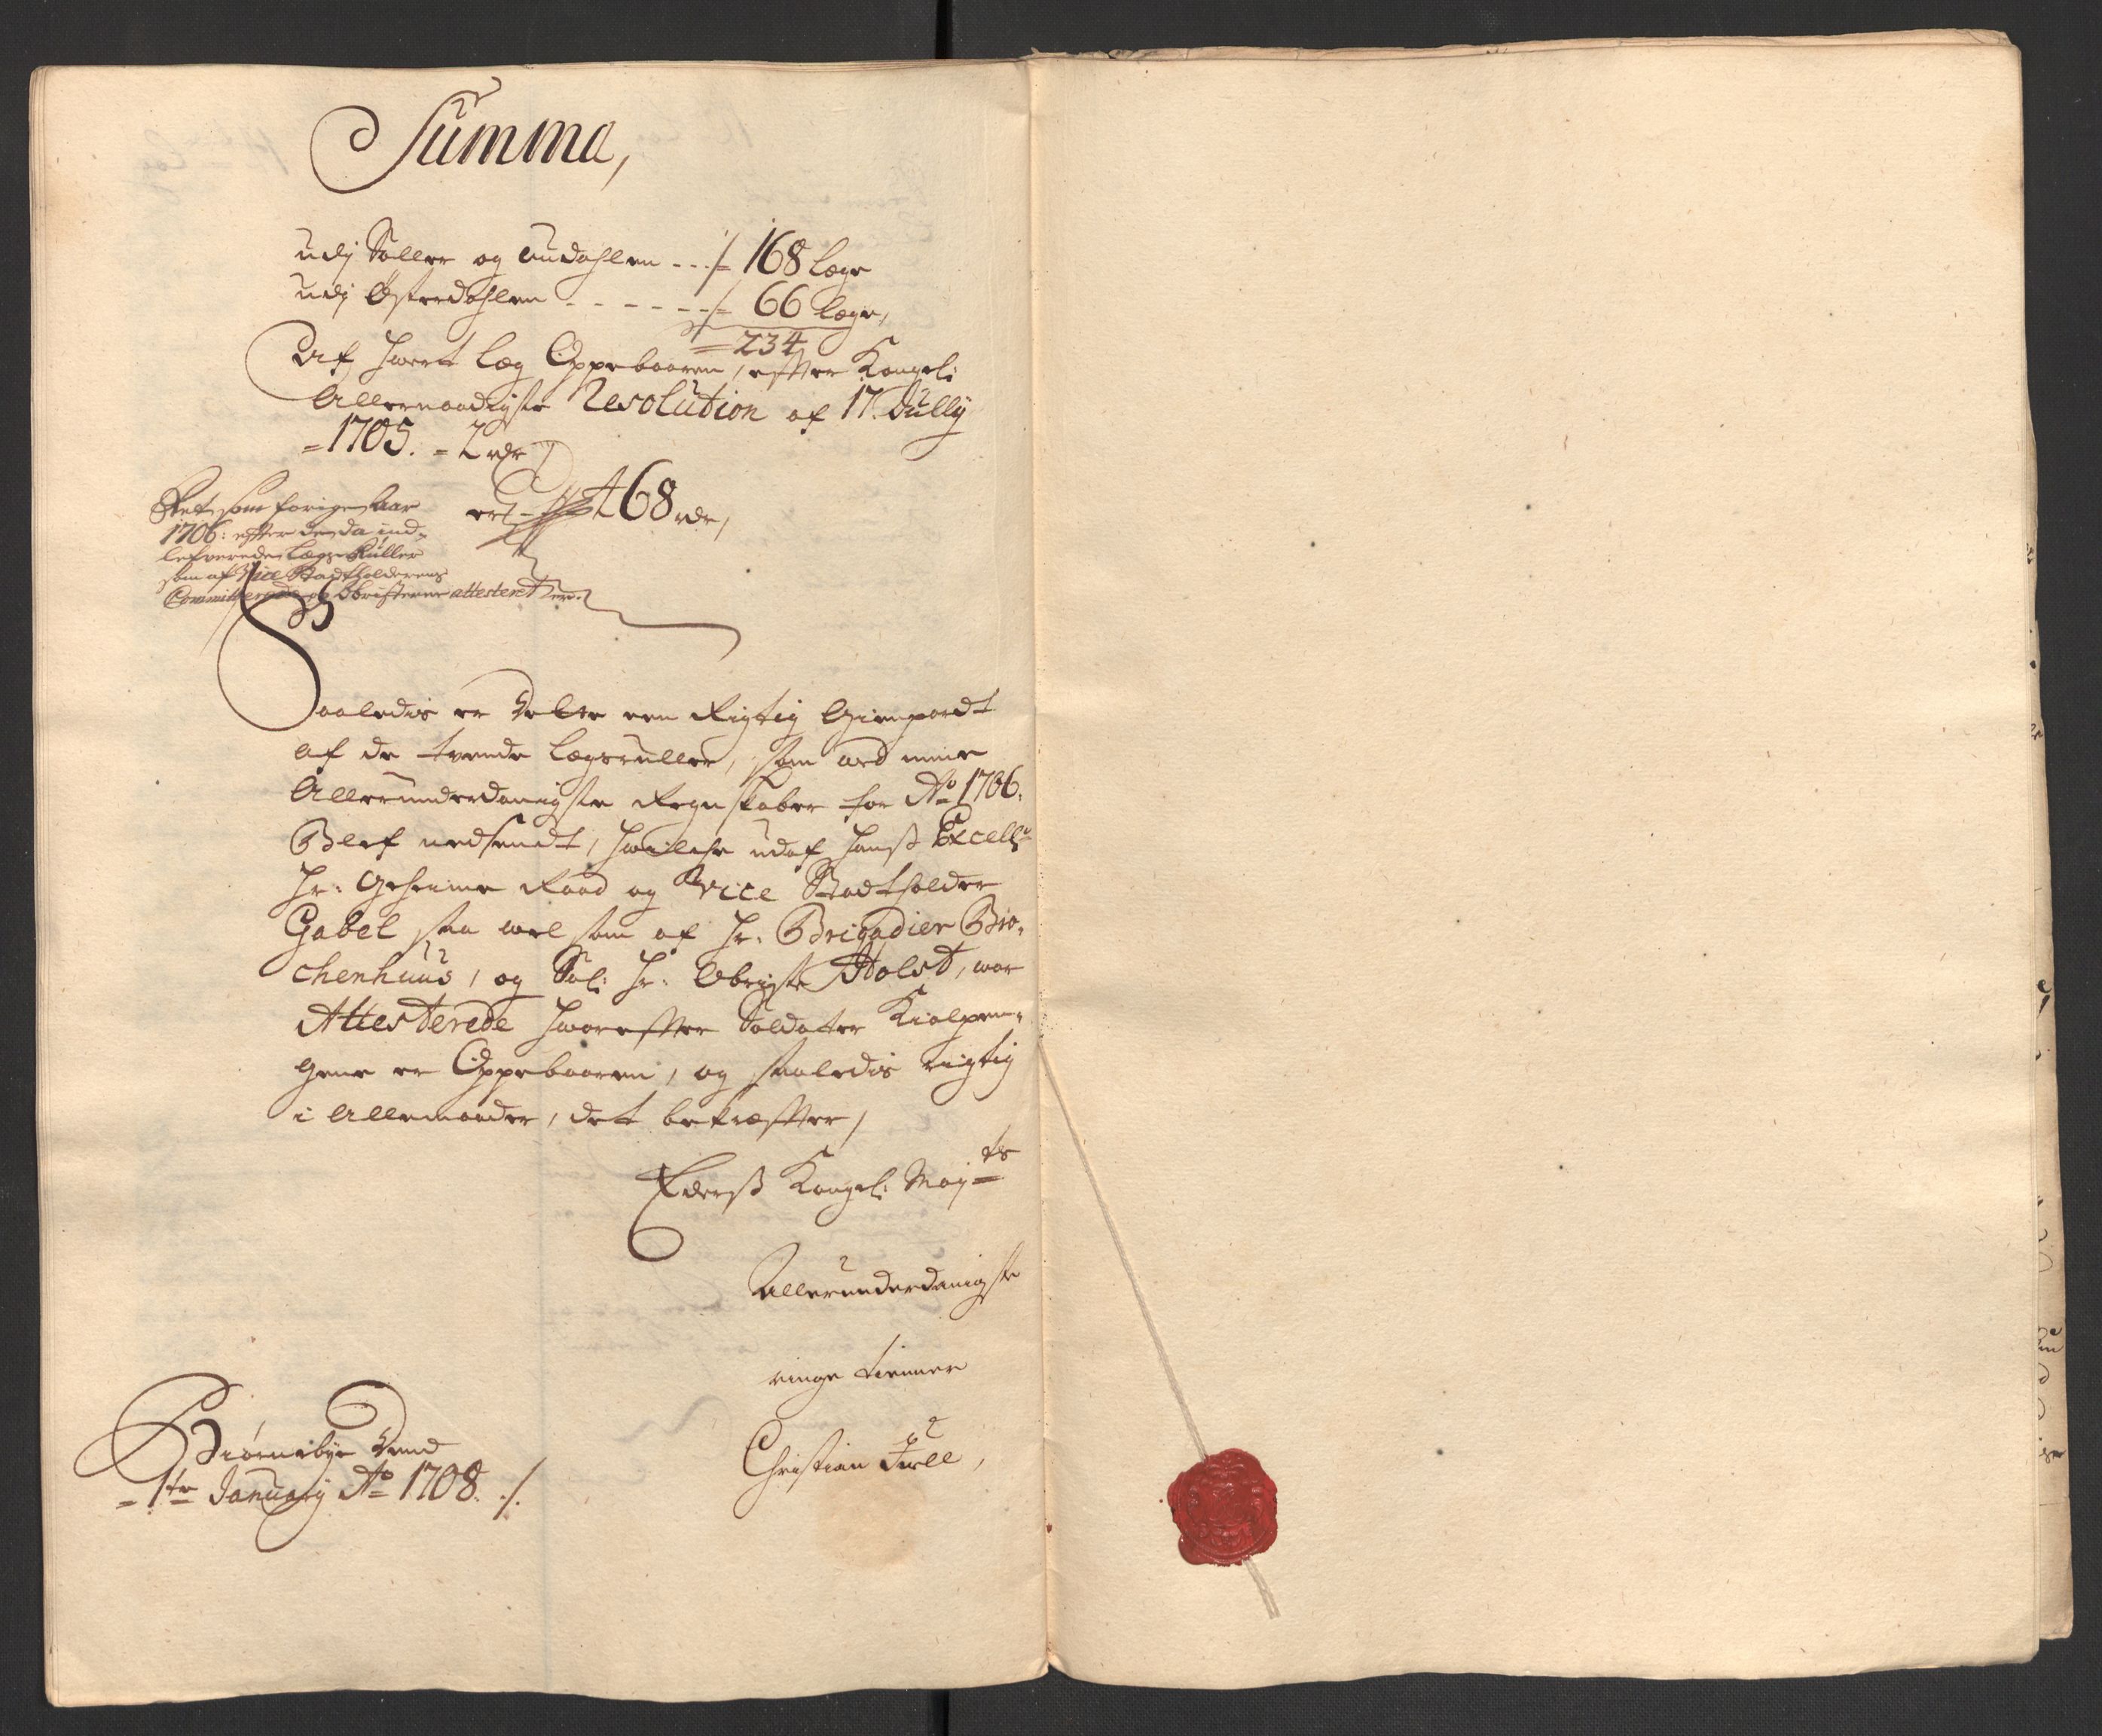 Summa,
udj Soller og Audahlen - - ./. 168 læge
udj Østerdahlen - - - - - - ./. 66 læge,
= 234
Af hvert læg Oppebaaren, efter Kongel:
Allernaadigste Resolution af 17. Jully
= 1705. = 2 rdr
er - 468 rdr,
Ret som forige Aar
1706: efter de da ind-
lefverede Lægs Ruller
som af Vice Stadtholderens
Committerede og Obristerne attesteret er.
Saaledis er dette een Rigtig Gienpardt
af de tvende lægsruller, som ved mine
Allerunderdanigste Regnskaber for Ao 1706.
Blef nedsendt, hvilche udaf Hans Excell:
Hr: Geheime Raad og Vice Stadtholder
Gabel saa vel som af Hr: Brigadier Bro-
chenhuus, og Sal: Hr: Obriste Holst, var
Attesterede hvorefter Soldater Kiolpen-
gene er Oppebaaren, og saaledis rigtig
i Allemaader, det bekræfter,
Ederss Kongel: Mayts
Allerunderdanigste
ringe tienner
Christian Juell,
Biørnebye dend
= 1te January Ao 1708. ./.